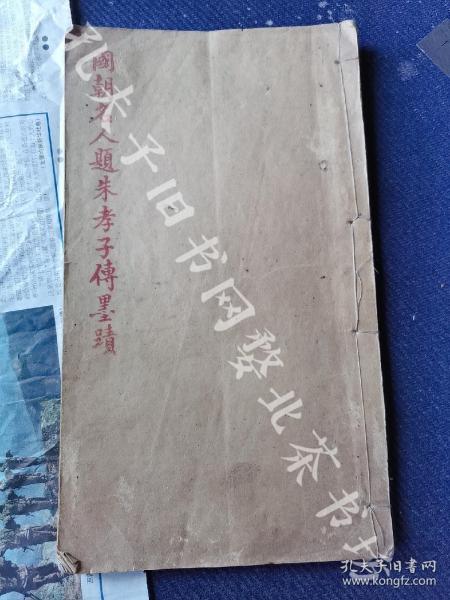 國朝名人題朱孝子傳墨蹟
孔夫子旧书网婺北茶书坊
孔夫子旧书网
www.kongfz.com